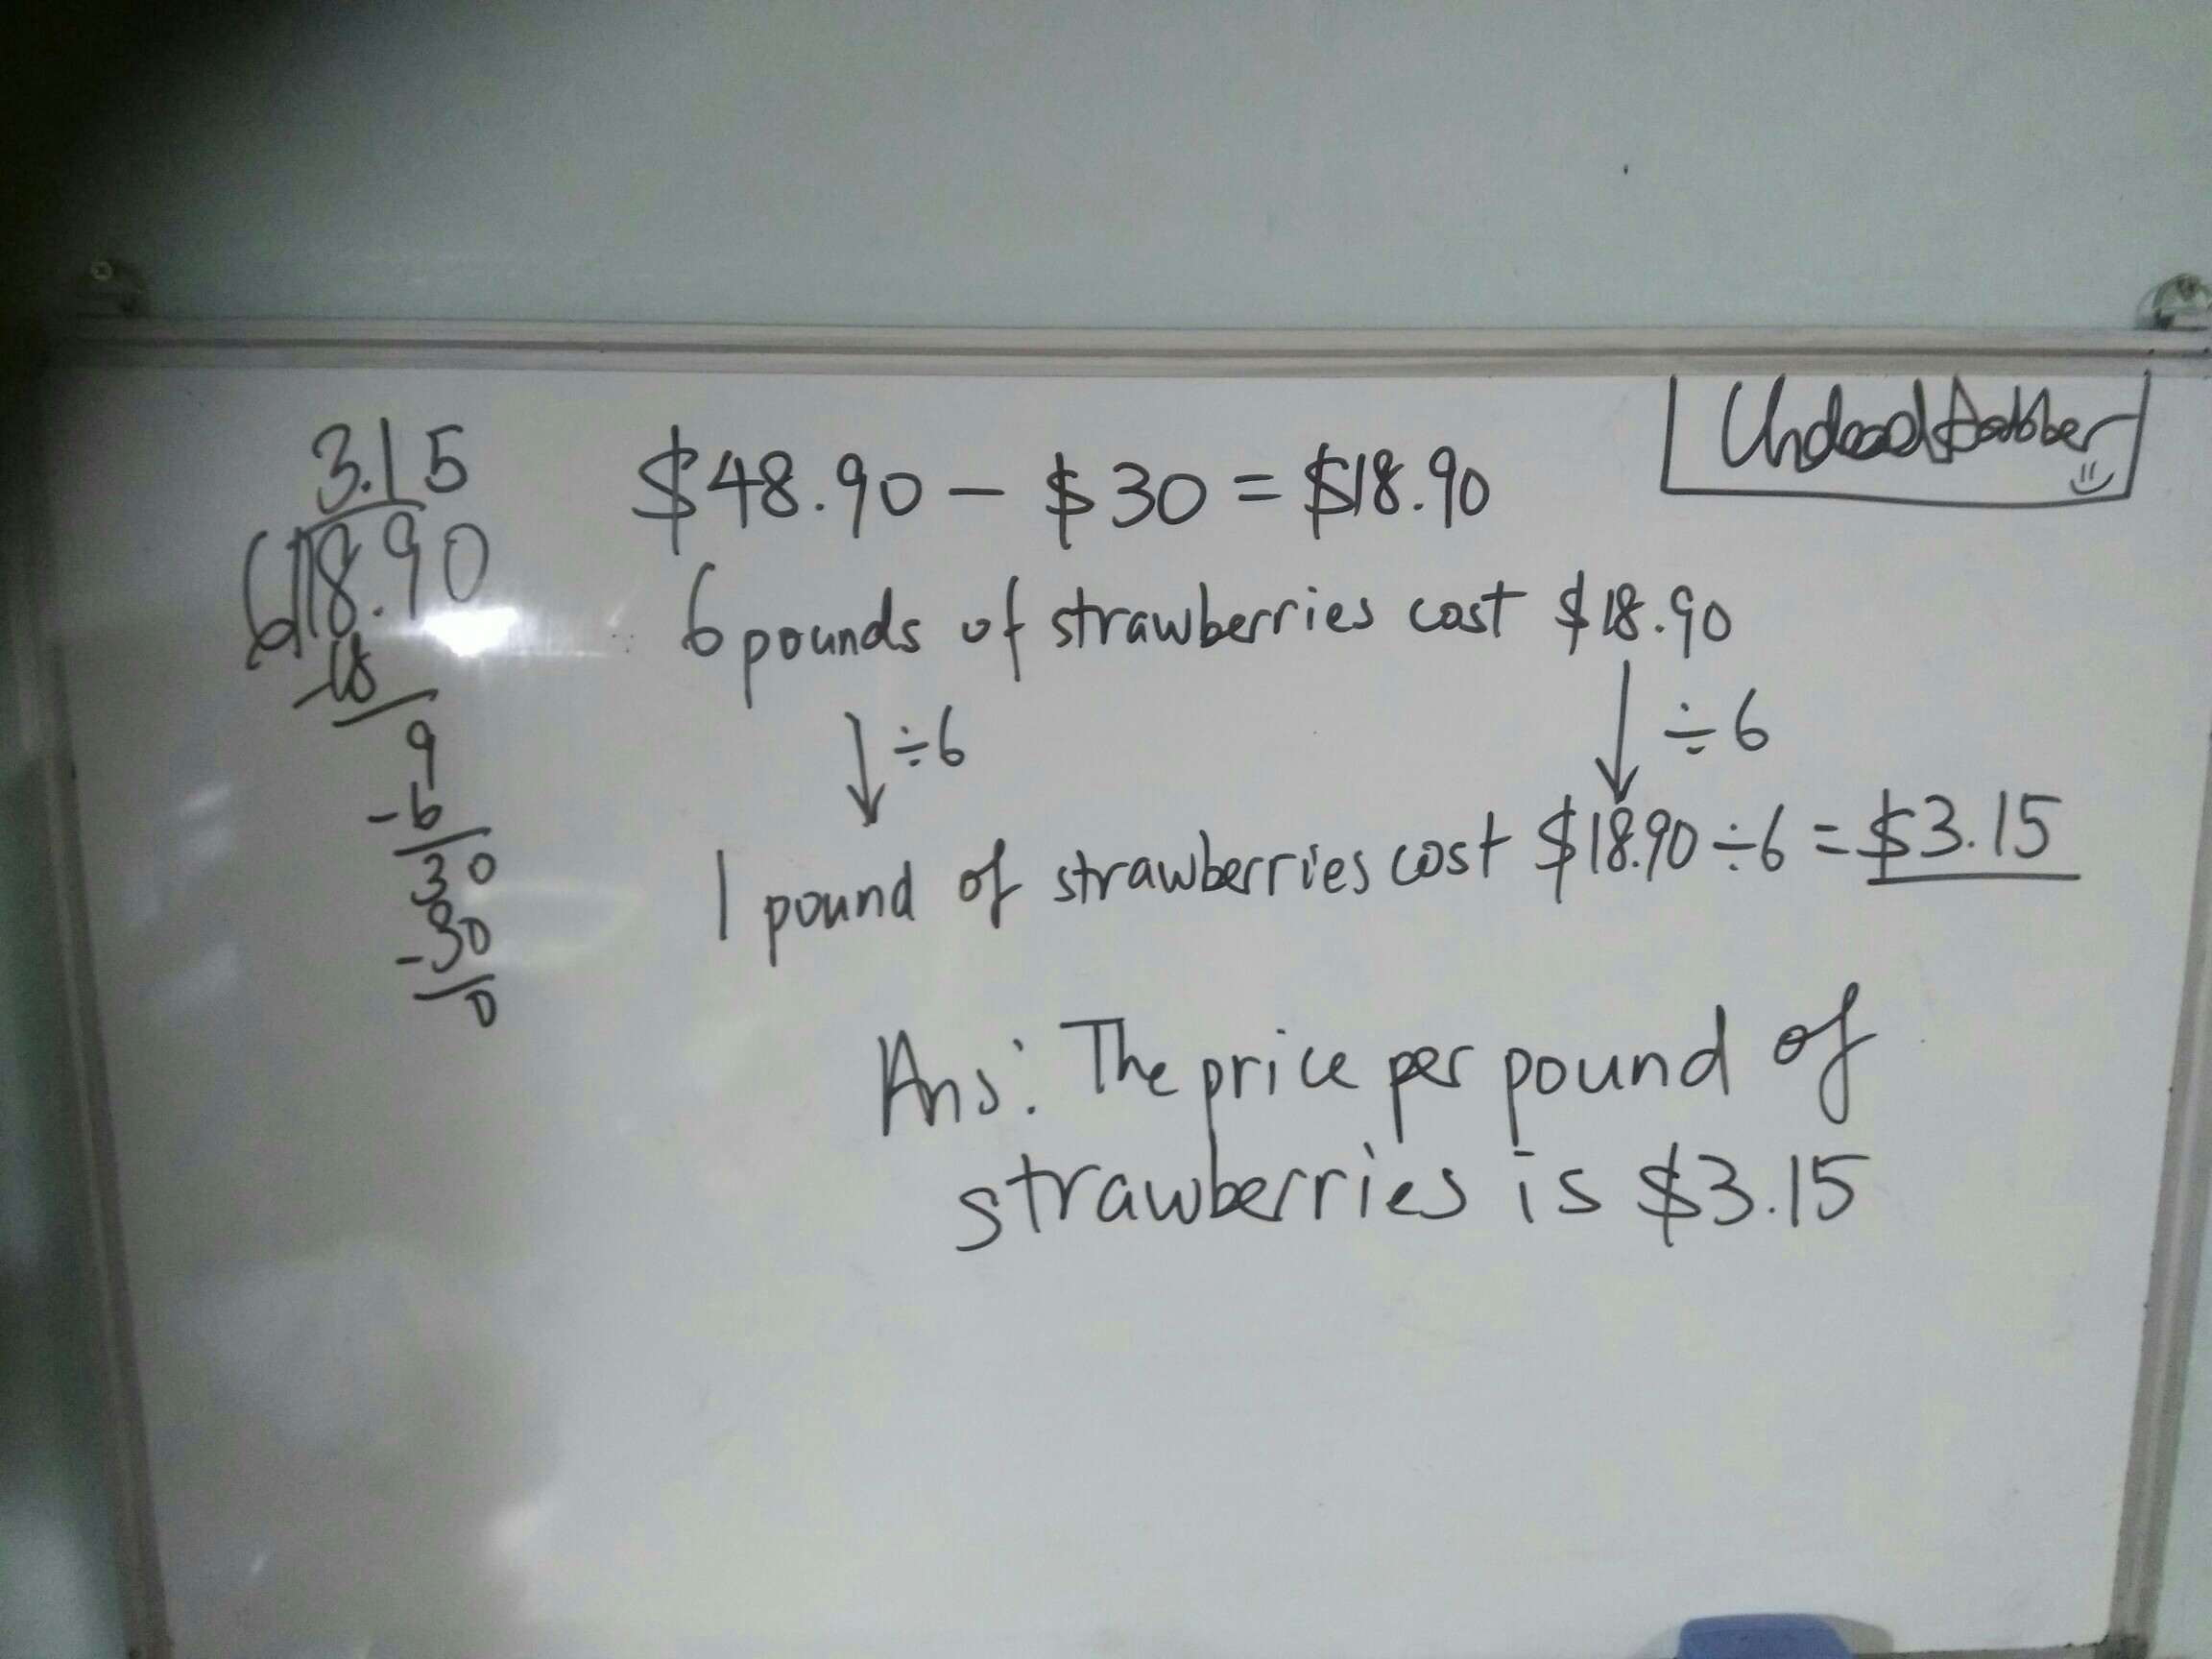 3.15
6 18.90
-18
9
-6
30
-30
0
$48.90 - $30 = $18.90
6 pounds of strawberries cost $18.90
↓ ÷6 ↓ ÷6
1 pound of strawberries cost $18.90 ÷ 6 = $3.15
Ans: The price per pound of
strawberries is $3.15
UndeadDabber